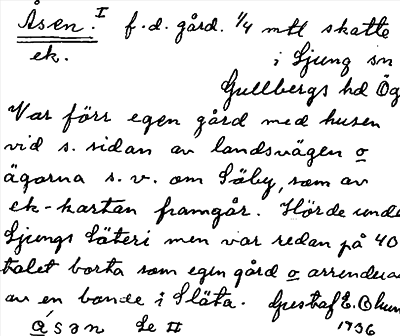 Åsen.I f.d. gård. 1/4 mtl skatte
ek. i Ljung sn
Gullbergs hd Ög
Var förr egen gård med husen
vid s. sidan av landsvägen o
ägorna s.v. om Säby, som av
ek-kartan framgår. Hörde unde
Ljungs Säteri men var redan på 40
talet borta som egen gård o arrenderad
av en bonde i Släta. Gustaf E. Ohun
åsen Se II 1936